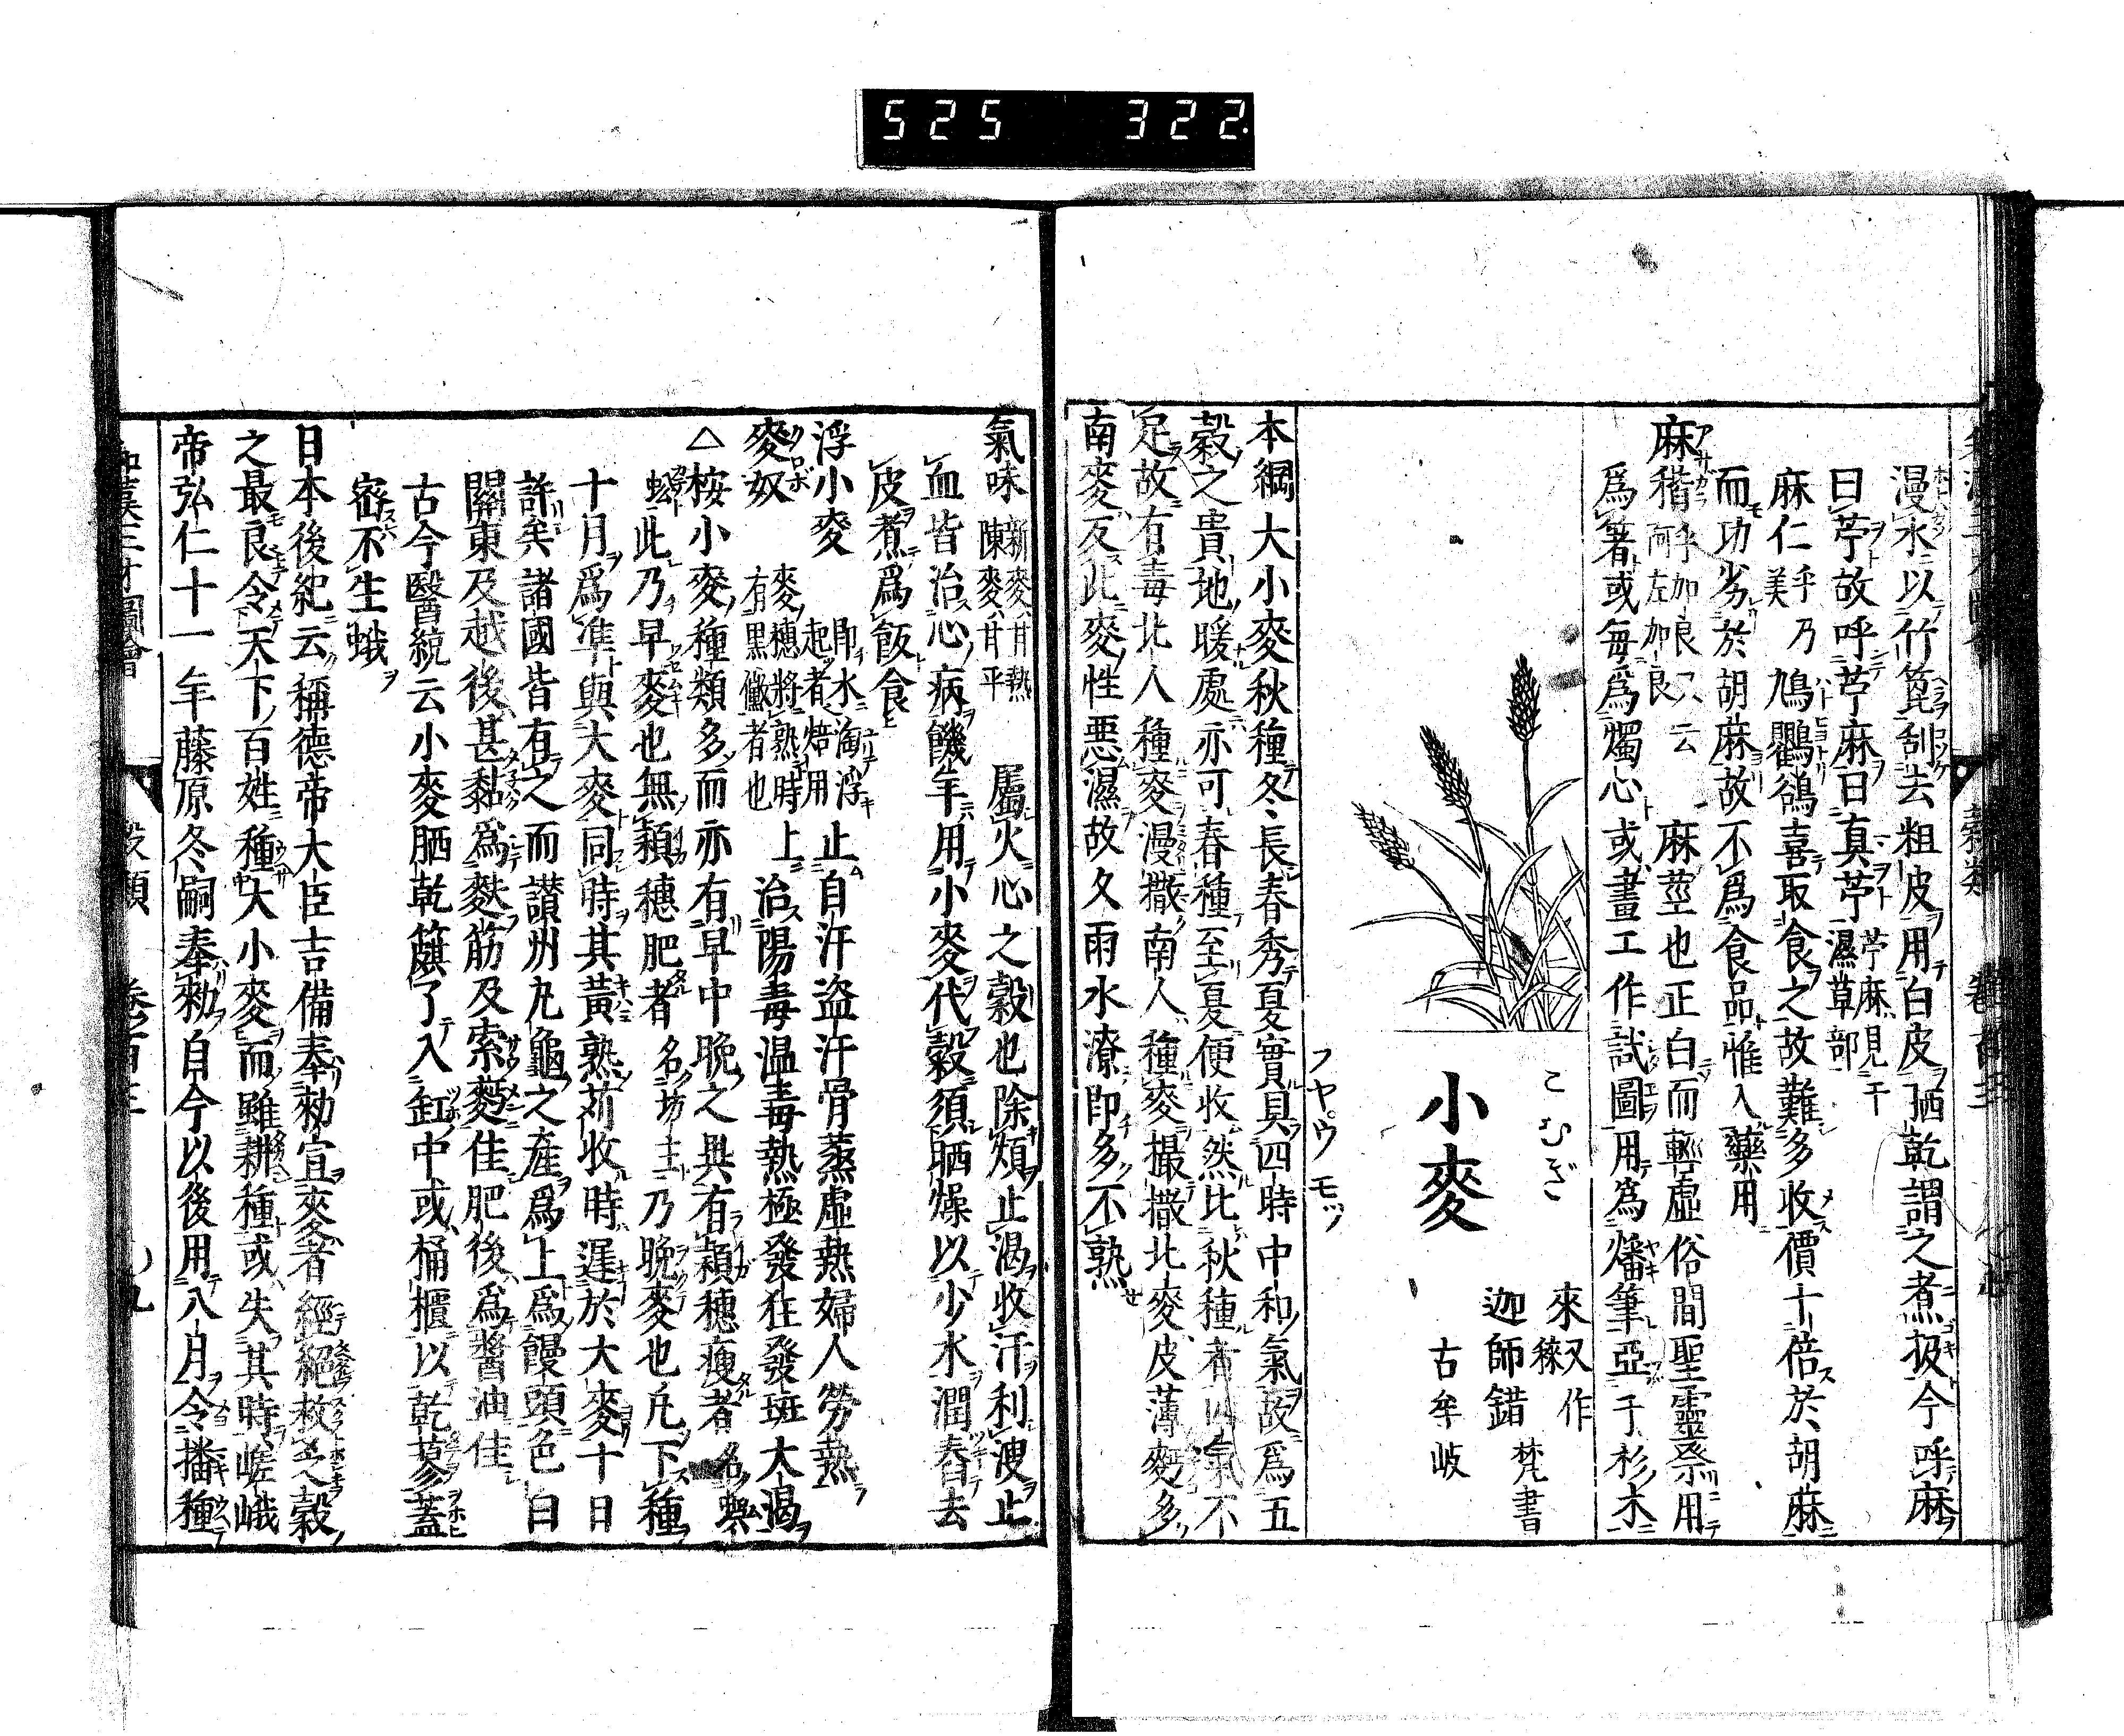 525 322
漫水以竹箆刮去粗皮用白皮晒乾謂之煮扱今呼麻
曰苧故呼苧麻曰真苧 苧麻見于濕草部
麻仁 乎乃美 鳩鸜鵒喜取食之故難多收價十倍於胡麻
而功劣於胡麻故不爲食品惟入藥用
麻稭 阿左加良 又云乎加良 麻莖也正白而輕虛俗間聖靈祭用
爲箸或每爲燭心或畫工作試圖用爲燔筆亞于杉木
こむぎ
小麥
フヤ゚ウ モツ
來 又作䅘
迦師錯 梵書
古牟岐
本綱大小麥秋種冬長春秀夏實具四時中和氣故爲五
穀之貴地暖處亦可春種至夏便收然比秋種者四氣不
足故有毒北人種麥漫撒南人種麥撮撒北麥皮薄麪多
南麥反此麥性惡濕故久雨水潦即多不熟
氣味 新麥甘熱 陳麥甘平 屬火心之穀也除煩止渴收汗利溲止
血皆治心病饑年用小麥代穀須晒燥以少水潤舂去
皮煮爲飯食
浮小麥 即水淘浮起者焙用 止自汗盜汗骨蒸虛熱婦人勞熱
麥奴 麥穗將熟時上有黑黴者也 治陽毒溫毒熱極發狂發斑大渴
△桉小麥種類多而亦有早中晚之異有穎穗瘦者名
此乃早麥也無穎穗肥者名坊主乃晚麥也凡下種
十月爲準與大麥同時其黃熟苅收時遲於大麥十日
許矣諸國皆有之而讃州丸龜之產爲上爲饅頭色白
關東及越後甚黏爲麩筋及索麪佳肥後爲醬油佳
古今醫統云小麥晒乾簸了入缸中或桶櫃以乾蓼蓋
密不生蛾
日本後紀云稱德帝大臣吉備奉勅宣麥者經絕救乏穀
之最良令天下百姓種大小麥而雖耕種或失其時嵯峨
帝弘仁十一年藤原冬嗣奉勅自今以後用八月令播種
和漢三才圖會 穀類 卷百三